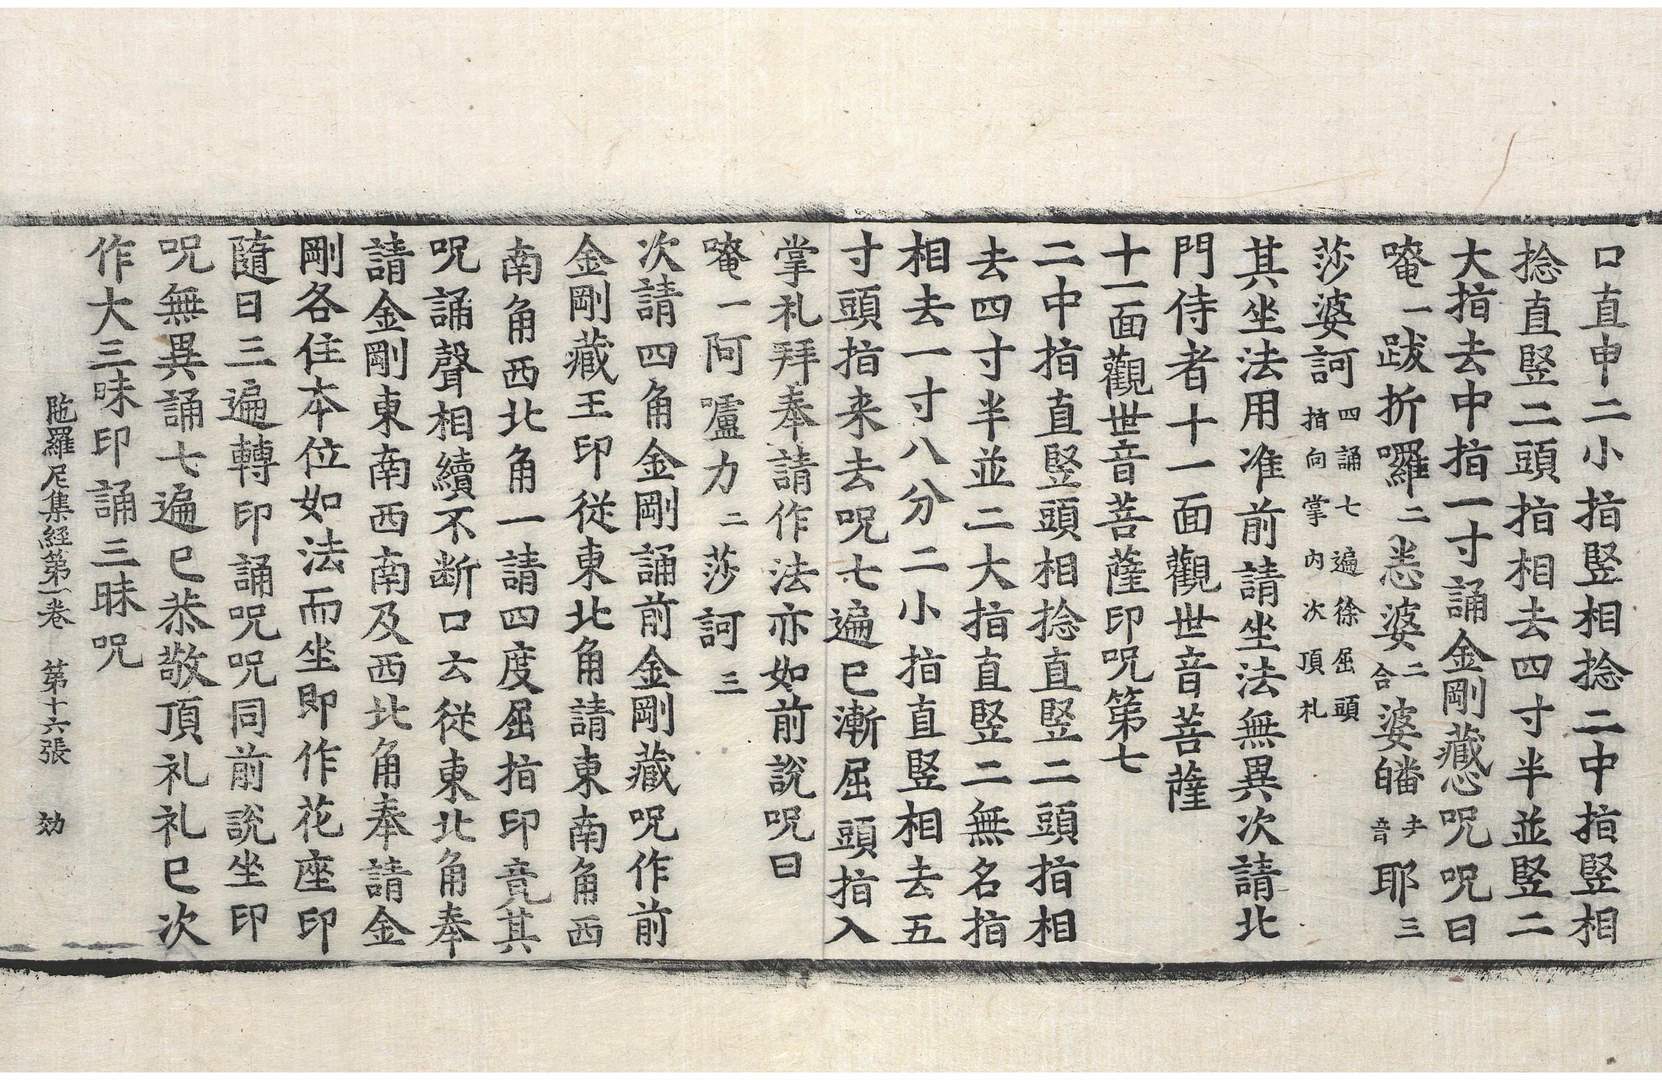 口直申二小指竪相捻二中指竪相
捻直竪二頭指相去四寸半並竪二
大指去中指一寸誦金剛藏呪呪曰
唵一跋折囉二悉婆二合婆皤去音耶三
莎婆訶四誦七遍徐屈頭指向掌内次頂礼
其坐法用准前請坐法無異次請北
門侍者十一面觀世音菩薩
十一面觀世音菩薩印呪第七
二中指直竪頭相捻直竪二頭指相
去四寸半並二大指直竪二無名指
相去一寸八分二小指直竪相去五
寸頭指来去呪七遍已漸屈頭指入
掌礼拜奉請作法亦如前說呪曰
唵一阿嚧力二莎訶三
次請四角金剛誦前金剛藏呪作前
金剛藏王印從東北角請東南角西
南角西北角一請四度屈指印竟其
呪誦聲相續不断口云從東北角奉
請金剛東南西南及西北角奉請金
剛各住本位如法而坐即作花座印
隨日三遍轉印誦呪呪同前說坐印
呪無異誦七遍已恭敬頂礼礼已次
作大三昧印誦三昧呪
陁羅尼集經第一卷 第十六張 効